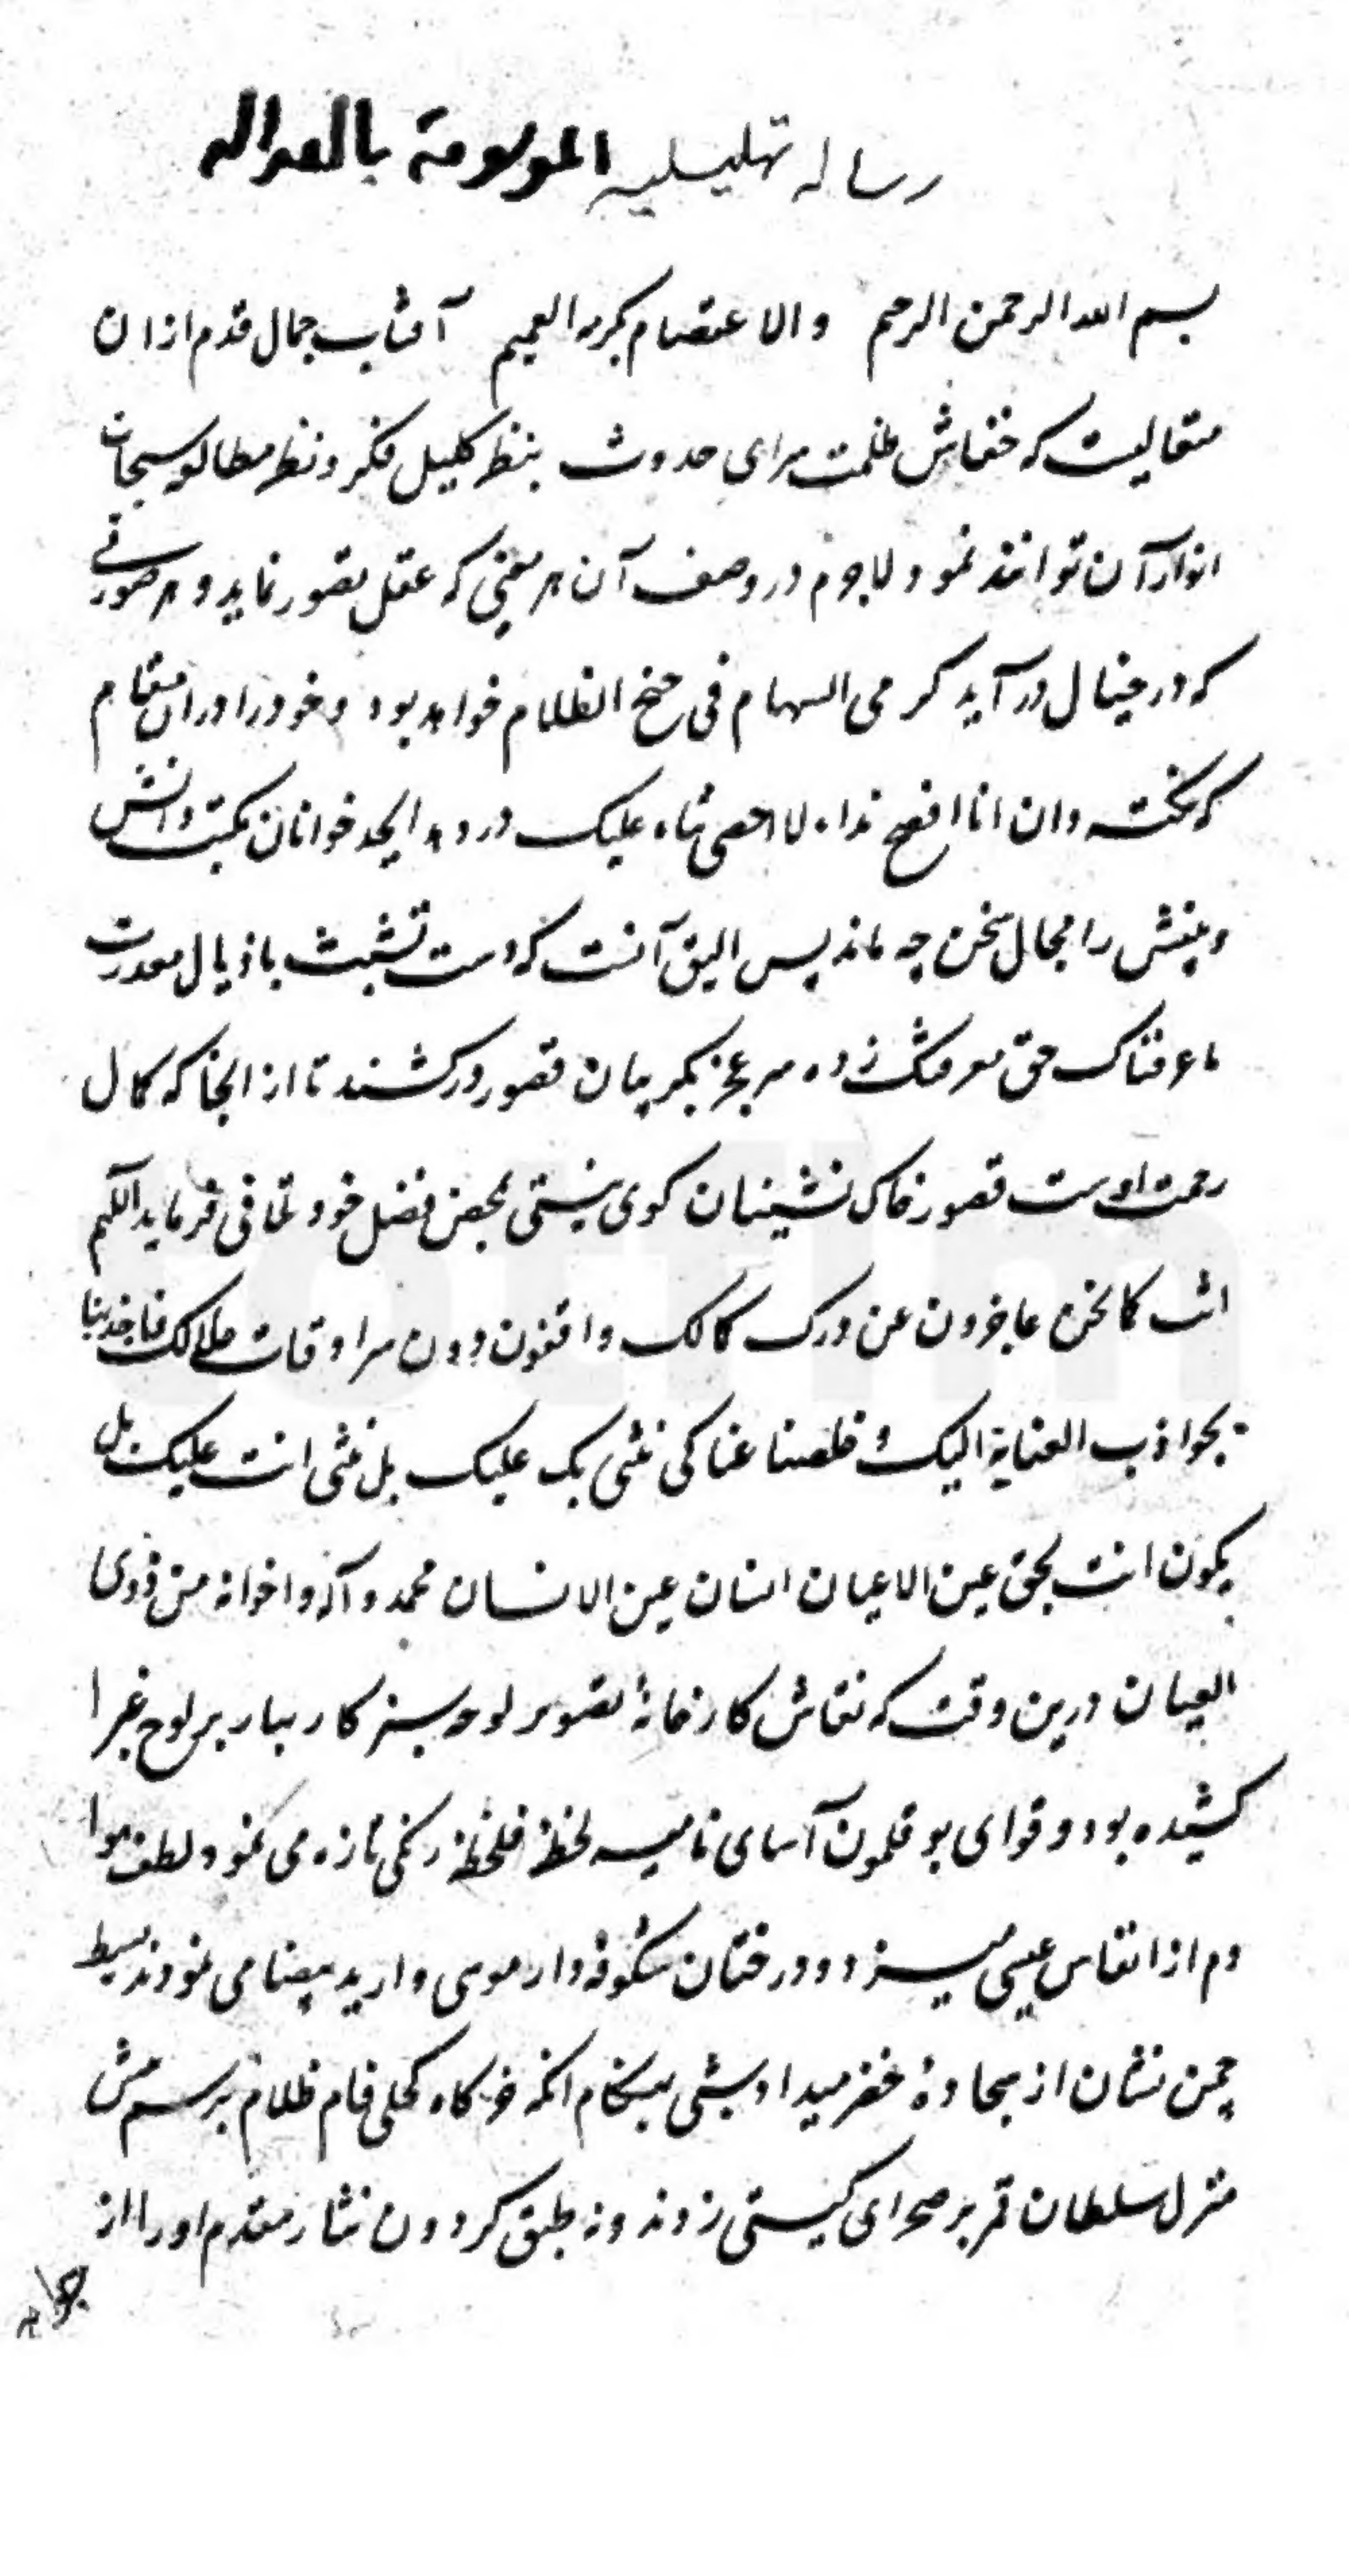 رساله تهلیلیه الموسومة بالعداله
بسم الله الرحمن الرحیم والاعتصام بکرمه العمیم آفتاب جمال قدم ازان
متعالیست که خفاش ظلمت سرای حدوث بنظر کلیل فکر و نظر مطالعه سبحات
انوار آن توانند نمود لاجرم در وصف آن هر معنی که عقل تصور نماید و هر صورتے
که در خیال در آید کرمی السهام فی جنح الظلام خواهد بود و خود را دران مقام
که نکته دان انا افصح ندا، لا احصی ثناء علیک در دهد ابجد خوانان مکتب دانش
و بینش را مجال سخن چه ماند پس الیق آنست که دست تشبث باذیال معذرت
ما عرفناک حق معرفتک زده سر عجز بگریبان قصور درکشند تا از انجا که کمال
رحمت اوست قصور خاک نشینان کوی نیستی بمحض فضل خود تلافی فرماید اللهم
انت کما نحن عاجزون عن درک کمالک واقفون دون سرادقات جلالک فاجذبنا
بجواذب العنایة الیک و خلصنا عنا کی نثنی بک علیک بل نثنی انت علیک بل
یکون انت بحق عین الاعیان انسان عین الانسان محمد و آله و اخوانه من ذوی
العیان درین وقت که نقاش کارخانهٔ تصویر لوحه سبز کار بهار بر لوح غبرا
کشیده بود و قوای بوقلمون آسای نامیه لحظه فلحظه رنگی تازه می نمود لطف هوا
دم از انفاس عیسی میزد و درختان شکوفه دار موسی وار ید بیضا می نمودند بسیط
چمن نشان از سجادهٔ خضر میداد شبی بهنگام انکه خرگاه کحلی فام ظلام برسم پیش
منزل سلطان قمر بر صحرای گیتی زدند و نه طبق گردون نثار مقدم او را از
جواهر